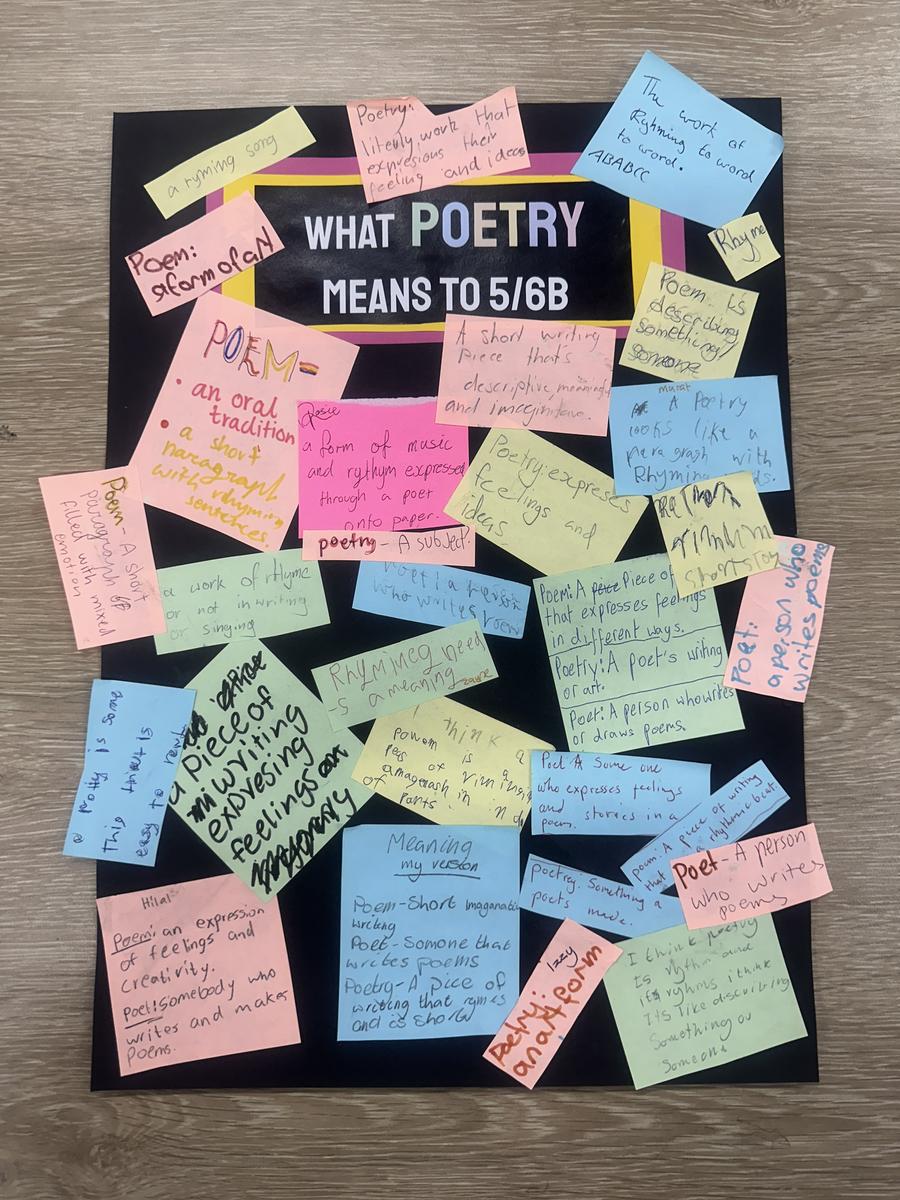 a ryming song
Poetry:
literly work that
expresious their
feeling and ideas
The work of
Ryhming to word
to word.
ABABCC
Rhyme
Poem:
a form of art
WHAT POETRY
MEANS TO 5/6B
Poem is
describing
something/
someone
POEM=
• an oral
tradition
• a short
paragraph
with rhyming
sentences.
A short writing
Piece that's
descriptive, meaningful
and imaginitave.
Rosie
a form of music
and rythym expressed
through a poet
onto paper.
murat
A Poetry
looks like a
paragrash with
Rhyming
Poetry: express
feelings and
ideas.
poetry - A subject.
short story
Poem - A short
paragraph of
filled with mixed
emotion
a work of rhyme
or not in writing
or singing
Poet: a person
who writes poem
Poem: A Piece of
that expresses feelings
in different ways.
Poetry: A poet's writing
or art.
Poet: A person who writes
or draws poems.
Poet:
a person who
writes poems
Rhymineg need
-s a meaning
a Piece of
writing
expresing
feelings
is some
This thhat is
easy to
think
is a
of
Poet A Some one
who expresses feelings
and stories in a
poem.
poem: A piece of writing
that a rhythmic beat
poetrey: Something a
poets made.
Poet - A person
who writes
poems
Meaning
my version
Poem - Short imaganative
writing
Poet - Somone that
writes poems
Poetry - A pice of
writing that rymes
and is short
Hilal
Poem: an expression
of feelings and
Creativity.
poet: somebody who
writes and makes
Poems.
Izzy
Poetry:
an art form
I think poetry
Is rythm and
its ryhms i think
Its like discribing
Something or
Someone